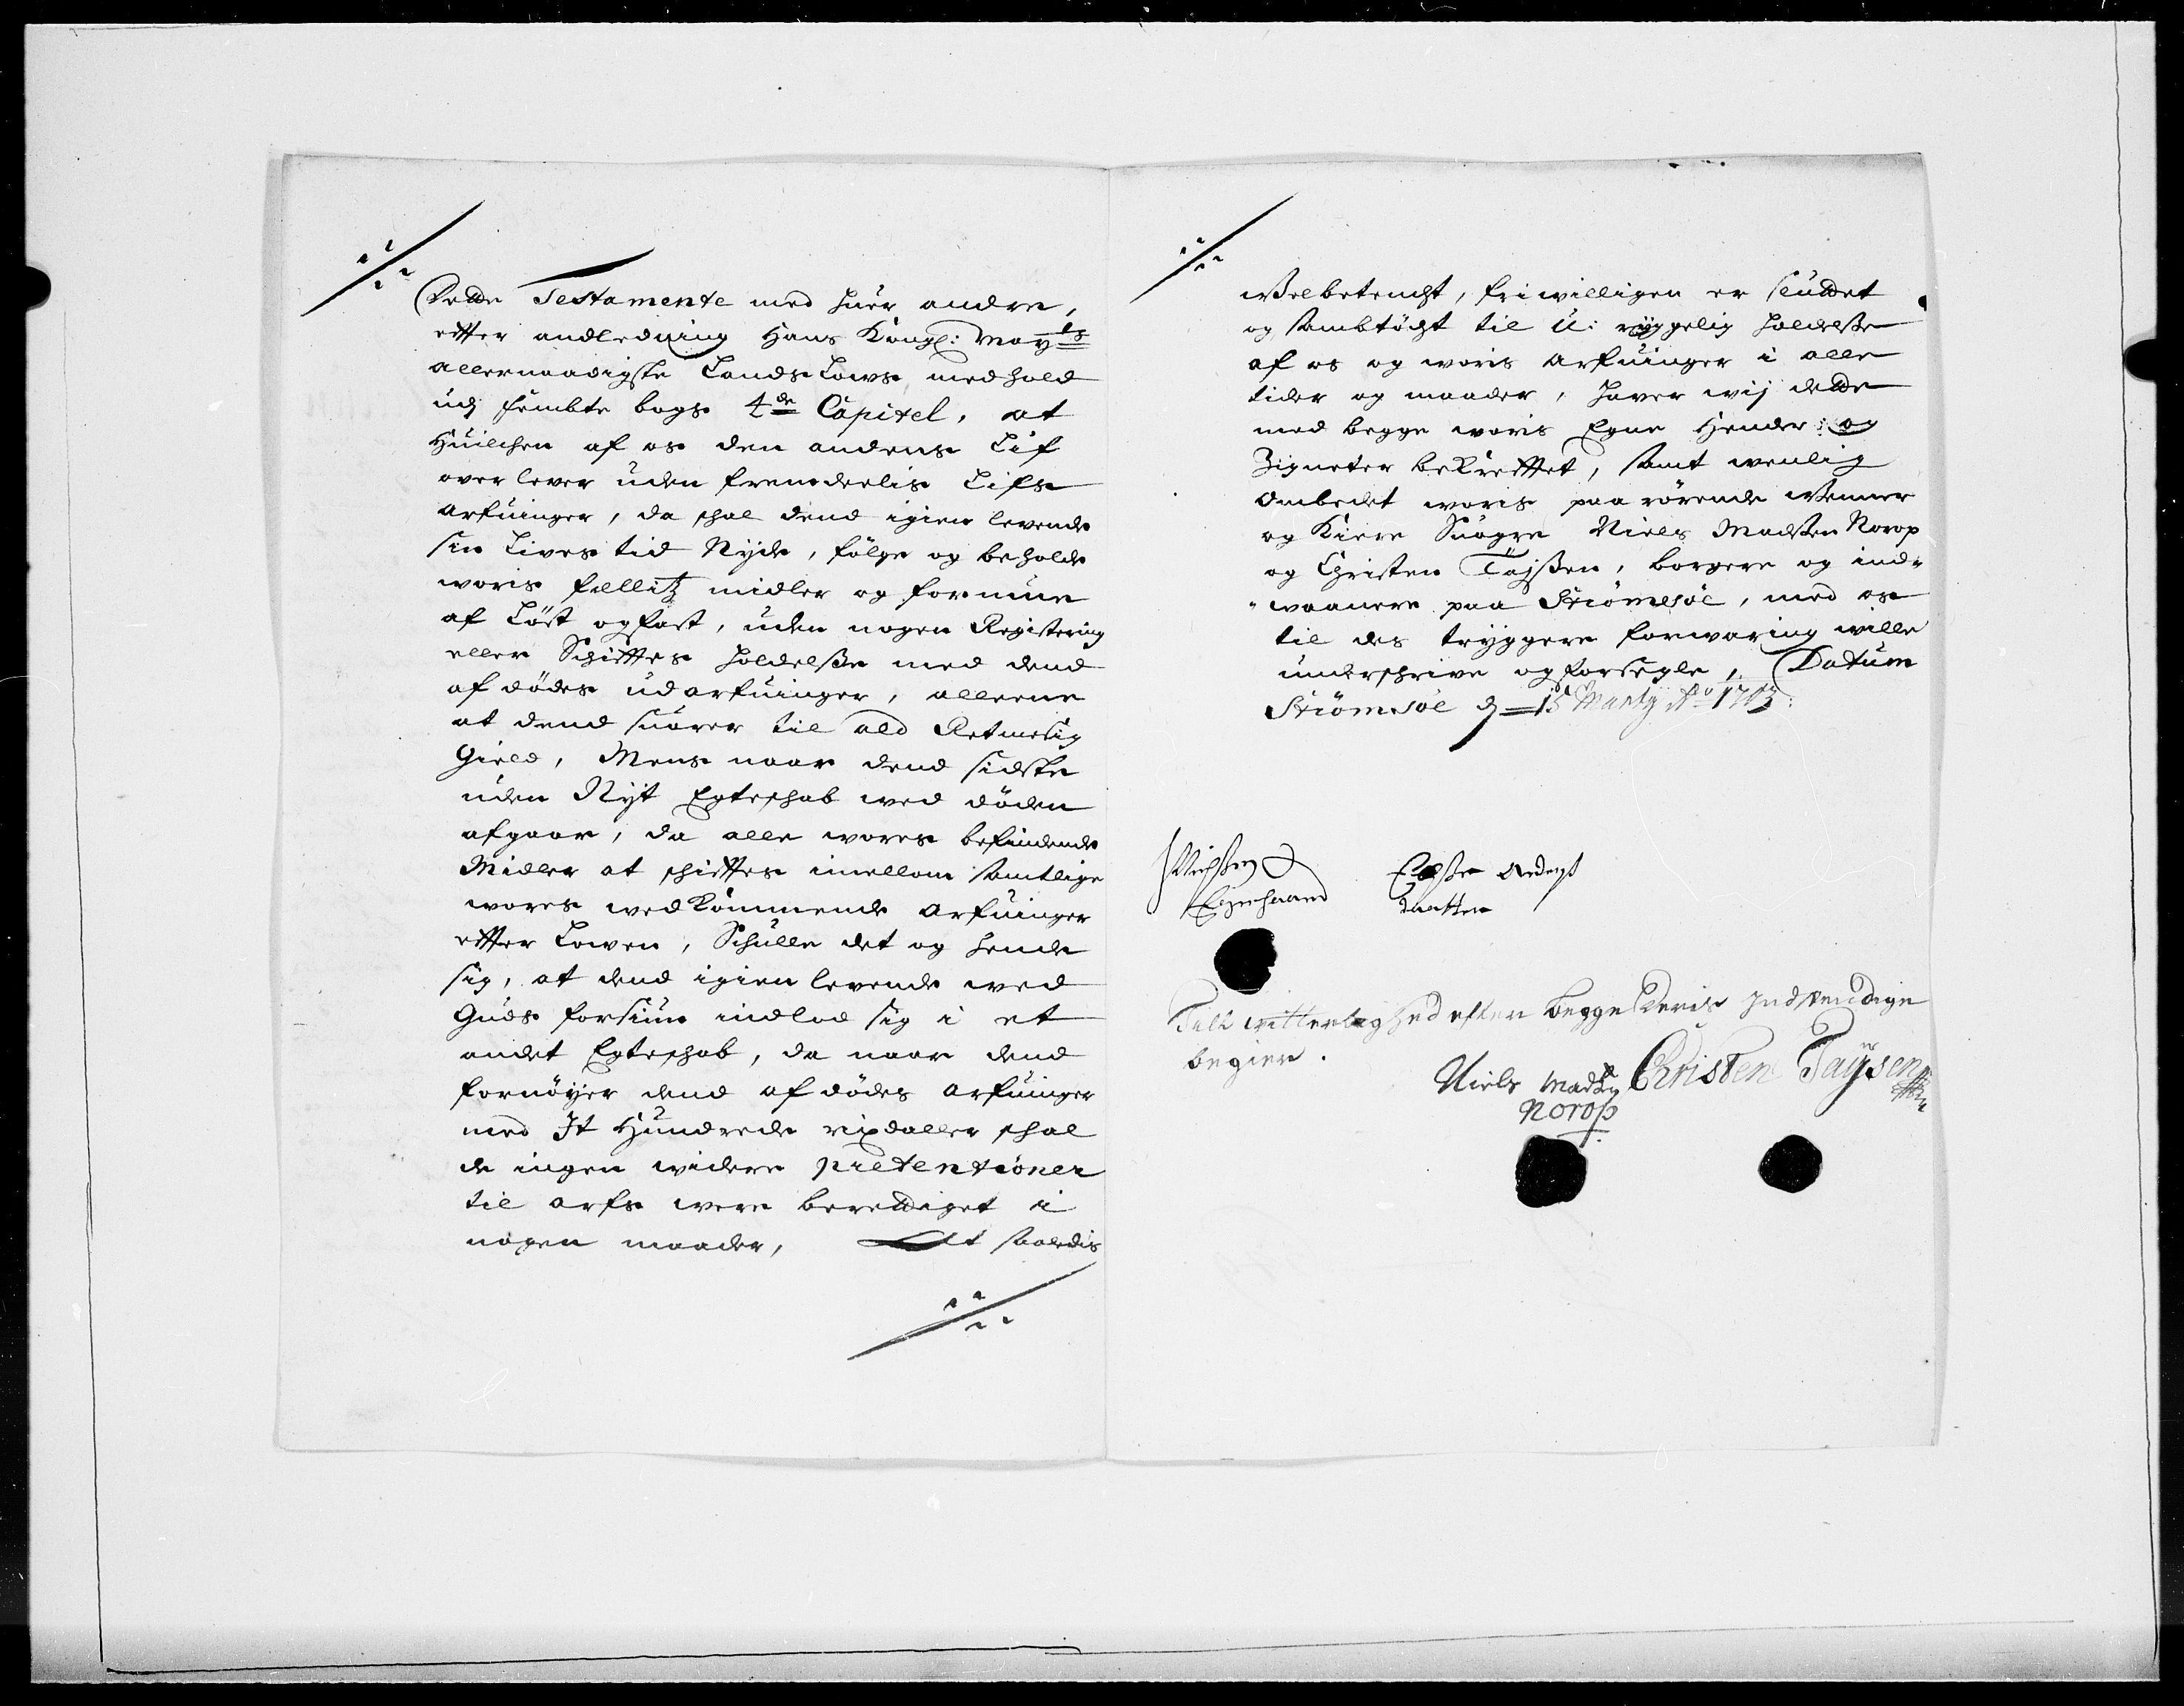 Dette Testamente med huer andre,
effter andledning Hans Kongl: May=ts
allernaadigste Lands Lows medhold
udj fembte bogs 4de Capitel, at
Huilchen af os den andens Lif
over lever uden fremdeelis Lifs
arfuinger, da schal dend igien levende
sin Lives tid Nyde, følge og beholde
woris fellitz midler og formue
af Löst og fast, uden nogen Registering
eller Schifftes holdelsse med dend
af dödes udarfuinger, alleene
at dend suarer til ald Retmesig
Gield, Mens naar dend sidste
uden Nyt Egteschab wed döden
afgaar, da alle wores befindende
Midler at schifftes imellom samtlige
wores wedkommende arfuinger
effter Lowen, Schulle det og hende
sig, at dend igien levende wed
Guds forsiun indlod sig i et
andet Egteschab, da naar dend
fornöyer dend af dödes arfuinger
med It Hundrede rixdaller schal
de ingen widere pretentioner
til arfs were berettiget i
nogen maader, Alt saaledis
welbetencht, friwilligen er sluttet
og sambtöcht til U: ryggelig holdelsse
af os og woris arfuinger i alle
tider og maader, haver wij dette
med begge woris Egne Hender og
Zigneter bekrefftet, samt wenlig
ombedet woris paa rörende wenner
og Kiere Suogre Niels Madsen Norop
og Christen Tøjsen, borgere og ind-
-waanere paa Strömsöe, med os
til des tryggere forwaring wille
underschrive og forsegle, Datum
Strömsöe d=15 Marty Ao 1703:
Eigenhaand
Elsse Anders
daatter
Till witterlighed efter begge deris indstendige
begier.
Niels Madsen
Norop
Christen Tøysen